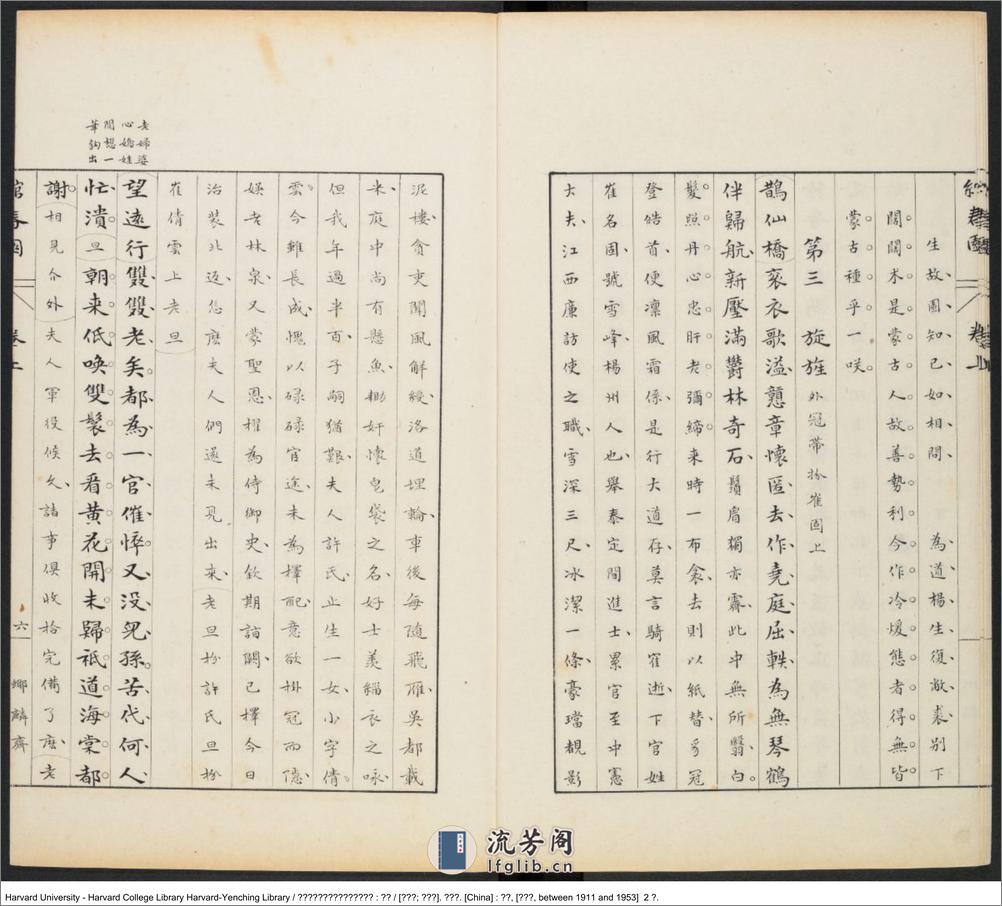 生故園知己如相問　為道楊生復敝裘別下
闊闊朮是蒙古人故善勢利今作冷煖態者得無皆
蒙古種乎一咲
第三　旋旌　外冠帶扮崔固上
鵲仙橋袞衣歌溢戇章懷匿去作堯庭屈軼為無琴鶴
伴歸航新壓滿鬱林奇石鬚眉獨亦霽此中無所翳白
髮照丹心忠肝老彌締來時一布衾去則以紙替豸冠
登皓首便凜風霜係是行大道存莫言騎寉逝下官姓
崔名固號雪峰楊州人也舉泰定間進士累官至中憲
大夫江西廉訪使之職雪深三尺冰潔一條豪璫覩影
泥樓貪吏聞風解綬洛道埋輪車後每隨飛雁吳都載
米庭中尚有懸魚鋤奸懷皂袋之名好士羙緇衣之咏
但我年過半百子嗣猶艱夫人許氏止生一女小字倩
雲今雖長成愧以碌碌官途未為擇配意欲掛冠而隱
娱老林泉又蒙聖恩擢為侍御史欽期詣闕已擇今日
治裝北返怎麽夫人們還未見出來老旦扮許氏旦扮
崔倩雲上老旦
望遠行雙雙老矣都為一官催悴又没兒孫苦代何人
忙潰旦朝来低唤雙鬟去看黃花開未歸祗道海棠都
謝相見介外夫人軍役候久諸事俱收拾完備了麽老
老婦婆
心嬌娃
閒想一
筆鈎出
卷上
六
嫏麟齋
流芳阁
lfglib.cn
Harvard University - Harvard College Library Harvard-Yenching Library / ??????????????? : ?? / [???; ???]. ???. [China] : ??, [???, between 1911 and 1953] 2 ?.